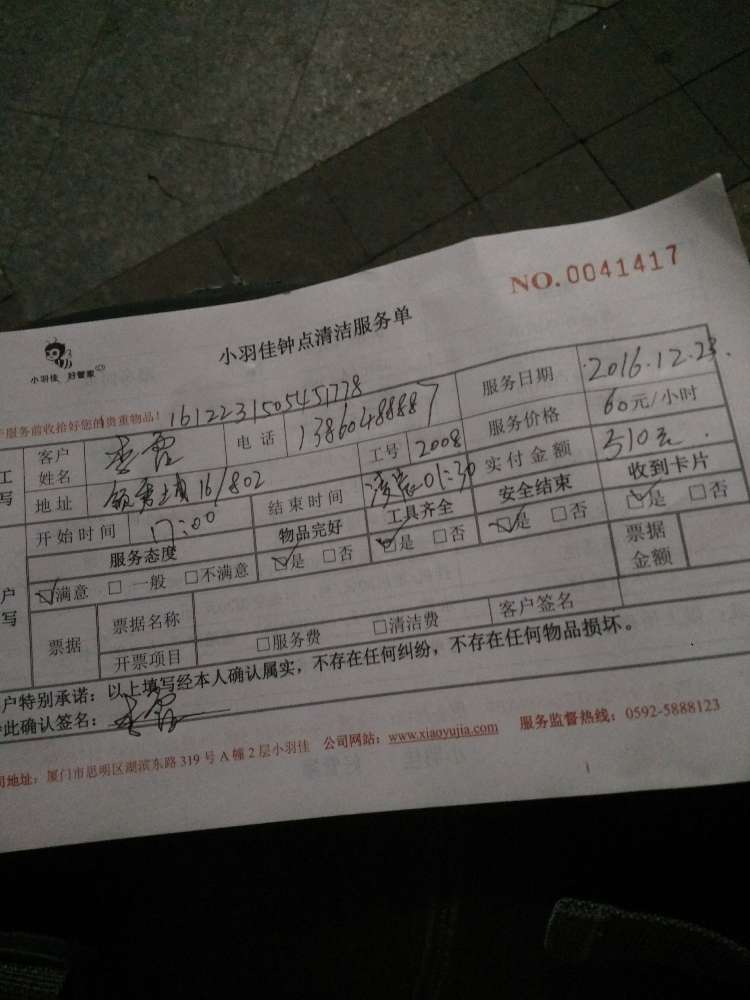 NO.0041417
小羽佳钟点清洁服务单
小羽佳 好管家
服务前收拾好您的贵重物品! 1612231505451778
客户姓名 李霞 电话 13860488887 服务日期 2016.12.23.
地址 16/802 工号 2008 服务价格 60元/小时
开始时间 17:00 结束时间 凌晨01:30 实付金额 510元.
服务态度 物品完好 工具齐全 安全结束 收到卡片
☑满意 □一般 □不满意 ☑是 □否 ☑是 □否 ☑是 □否 ☑是 □否
票据 票据名称 票据金额
开票项目 □服务费 □清洁费 客户签名
户特别承诺:以上填写经本人确认属实,不存在任何纠纷,不存在任何物品损坏。
此确认签名: 李霞
地址:厦门市思明区湖滨东路319号A幢2层小羽佳 公司网站:www.xiaoyujia.com 服务监督热线:0592-5888123